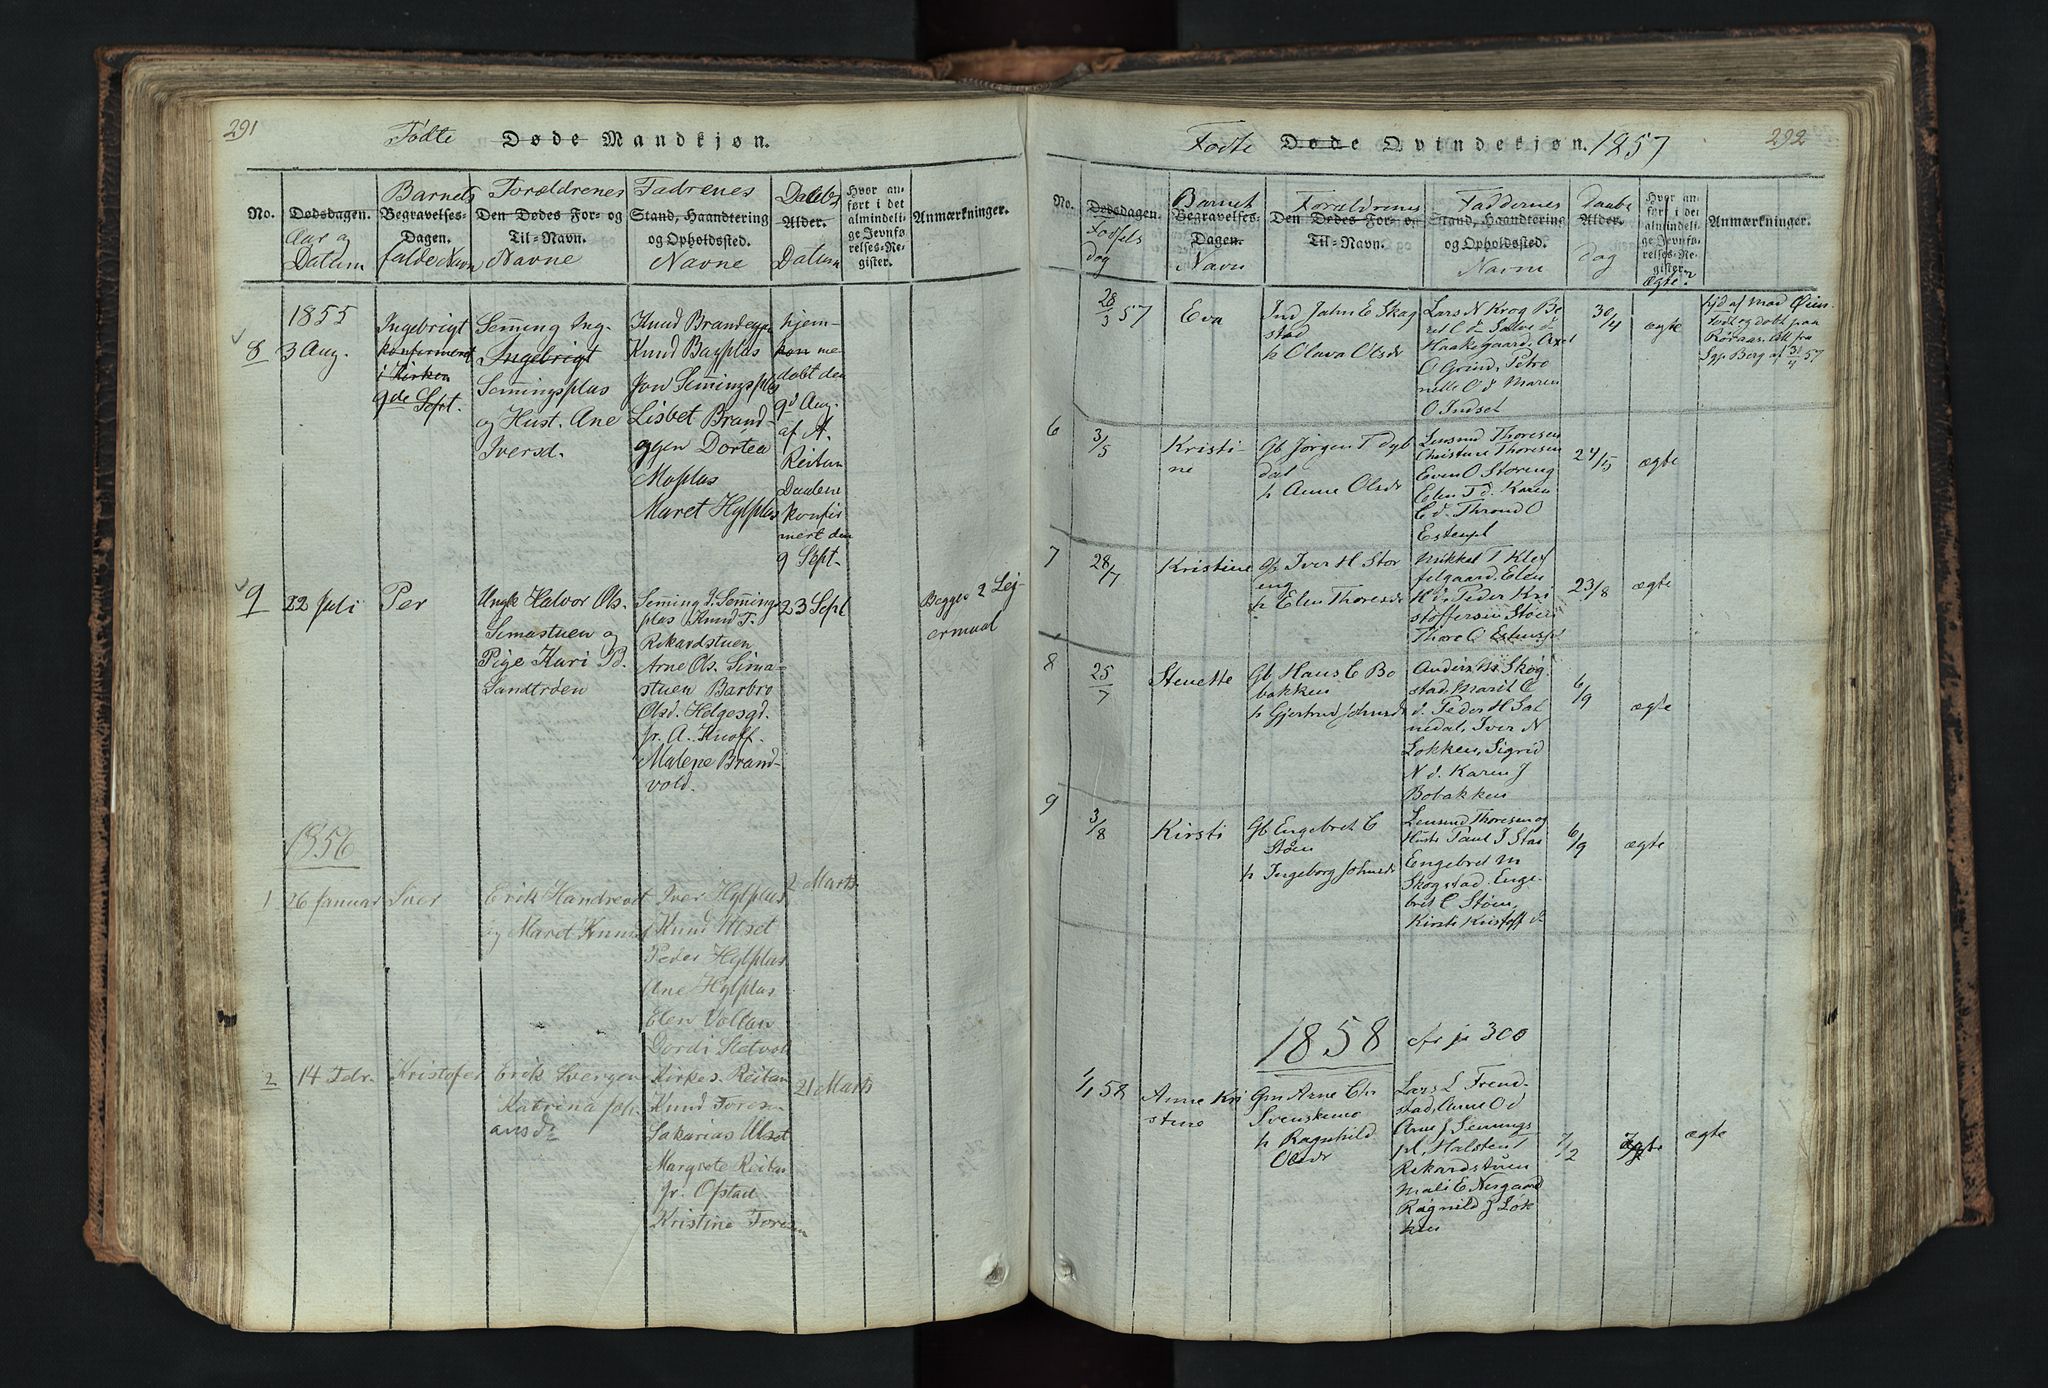 291
Fødte Døde Mandkjøn.
No.
Dødsdagen.
Aar og
Datum
Barnets
Begravelses-
Dagen.
fulde Navn
Forældrenes
Den Dødes For- og
Til-Navn.
Navne
Fadrenes
Stand, Haandtering
og Opholdssted.
Navne
Daabs
Alder.
Datum
Hvor an-
ført i det
almindeli-
ge Jevnfø-
relses-Re-
gister.
Anmærkninger.
1855
8 3 Aug.
Ingebrigt
konfirmeret
i Kirken
9de Sept.
Seming Ing-
Ingebrigt
Semingsplas
og Hust. Ane
Iversd.
Knud Brandegge
Knud Bayplas
Jon Semingsplas
Lisbet Brand-
eggen Dortea
Moplas
Maret Hylplas
hjem-
me
døbt den
9d Aug.
af A.
Reitan
Daaben
konfir
mert den
9 Sept.
9 22 Juli
Per
Ungk Halvor Ols.
Simastuen og
Pige Kari P.d.
Sandtrøen
Seming J. Seming-
plas Knud T.
Rikardstuen
Arne Ols. Sima-
stuen Barbro
Olsd. Helgesgd.
jr. A. Knoff.
Malene Brand-
vold.
23 Sept
Begges 2 Lej-
ermaal
1856
1 26 Januar
Iver
Erik Handrevet
og Maret Knuds
Iver Hylplas
Knud Utset
Peder Hylplas
Ane Hylplas
Elen Voltan
Dordi Sletvol
2 Marts
2 14 Febr.
Kristofer
Erik Svergen
Katrina Joh-
ansd:
Kirkes. Reitan
Knud Toresen
Sakarias Utset
Margrete Reitan
jr. Opstad
Kristine Toresen
21 Marts
292
Fødte Døde Qvindekjøn. 1857
No.
Dødsdagen.
Fødsels
dag
Barnet
Begravelses-
Dagen.
Navn
Forældrenes
Den Dødes For- og
Til-Navn.
Faddernes
Stand, Haandtering
og Opholdssted.
Navne
Daabs
Alder.
dag
Hvor an-
ført i det
almindeli-
ge Jevnfø-
relses-Re-
gister.
Ægte?
Anmærkninger.
28/3 57
Eva
Ind John E Skog
stad
h Olava Olsdr
Lars N Krog Be
ret C d
Haakegaard
O Grind, Petro
nelle O d Maren
O Indset
30/4
ægte
hjd af Mad Øien.
Født og døbt fra
Røraas. Att fra
Sgp Berg af 3/4 57
6 3/5
Kristi-
ne
Gb Jørgen T Dyb
dal
h Anne Olsdr
Lensmd Thoresen
Christine Thoresen
Even O Storeng
Elen T d. Karen
C d. Thrond O
Estenspl
24/5
ægte
7 28/7
Kristine
Gb Iver H Stor
eng
h Elen Thoresdr
Mikkel T Klef
felgaard. Elen
H d. Peder Kri
stoffersen Støen
Thore O Estenspl
23/8
ægte
8 25/7
Stenette
Gb Hans C Bo
bakken
h Gjertrud Johnsdr
Anders M Skog
stad, Marit C
d. Peder H Sal
nedal, Iver N
Løkken, Sigrid
N d. Karen J
Bobakken
6/9
ægte
9 3/8
Kirsti
Gb Engebret C
Støen
h Ingeborg Johnsdr
Lensmd Thoresen og
Hust: Paul J Stai
Engebret M
Skogstad. Enge-
bret C Støen,
Kirsti Kristoff d
6/9
ægte
1858 cfr p 300
1/1 58
Anne Kri
stine
Gm Arne Chr
Svenskemo
h Ragnhild
Olsdr
Lars L Trond-
stad, Anne O d
Arne J Semings
pl, Halsten T
Rikardstuen
Mali E Nergaard
Ragnild J Løk
ken
7/2
ægte